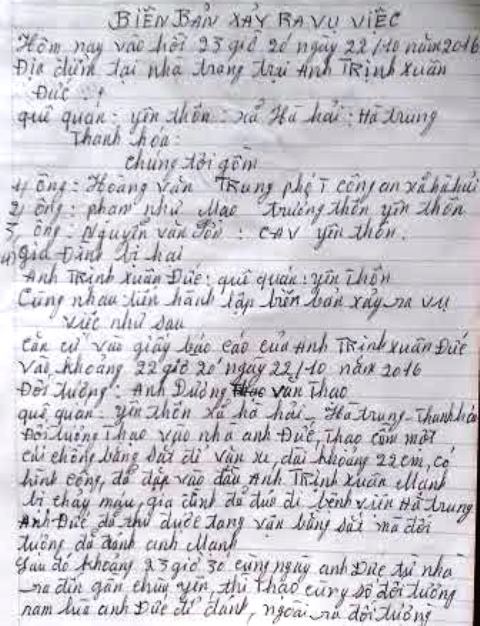 BIÊN BẢN XẢY RA VỤ VIỆC
Hôm nay vào hồi 23 giờ 20' ngày 22/10 năm 2016
Địa điểm tại nhà trang trại Anh TRịnh Xuân
Đức :
quê quán: yên thôn: xã Hà hải: Hà trung
Thanh hóa:
Chúng tôi gồm
1, ông: Hoàng văn TRung phó T công an xã hà hải
2, ông: phạm như Mạo trưởng thôn yên thôn
3, ông: Nguyễn văn : CAV yên thôn.
4, Gia Đình bị hại
Anh TRịnh Xuân Đức: quê quán: yên Thôn
Cùng nhau tiến hành lập biên bản xảy ra vụ
việc như sau
Căn cứ vào giấy báo cáo của Anh TRịnh Xuân Đức
vào khoảng 22 giờ 20' ngày 22/10 năm 2016
Đối tượng: Anh Dương văn Thao
quê quán: yên thôn xã hà hải - Hà trung - Thanh hóa
Đối tượng Thao vào nhà anh Đức, Thao cầm một
cái chòng bằng sắt để vặn xe, dài khoảng 22cm, có
hình cong, đã đập vào đầu Anh TRịnh Xuân Mạnh
bị chảy máu, gia đình đã đưa đi bệnh viện Hà trung
Anh Đức đã thu được tang vặn bằng sắt mà đối
tượng đã đánh anh Mạnh
Sau đó khoảng 23 giờ 30 cùng ngày anh Đức từ nhà
ra đến gần chùa yên, thì Thao cùng số đối tượng
nam lùa anh Đức để đánh, ngoài ra đối tượng